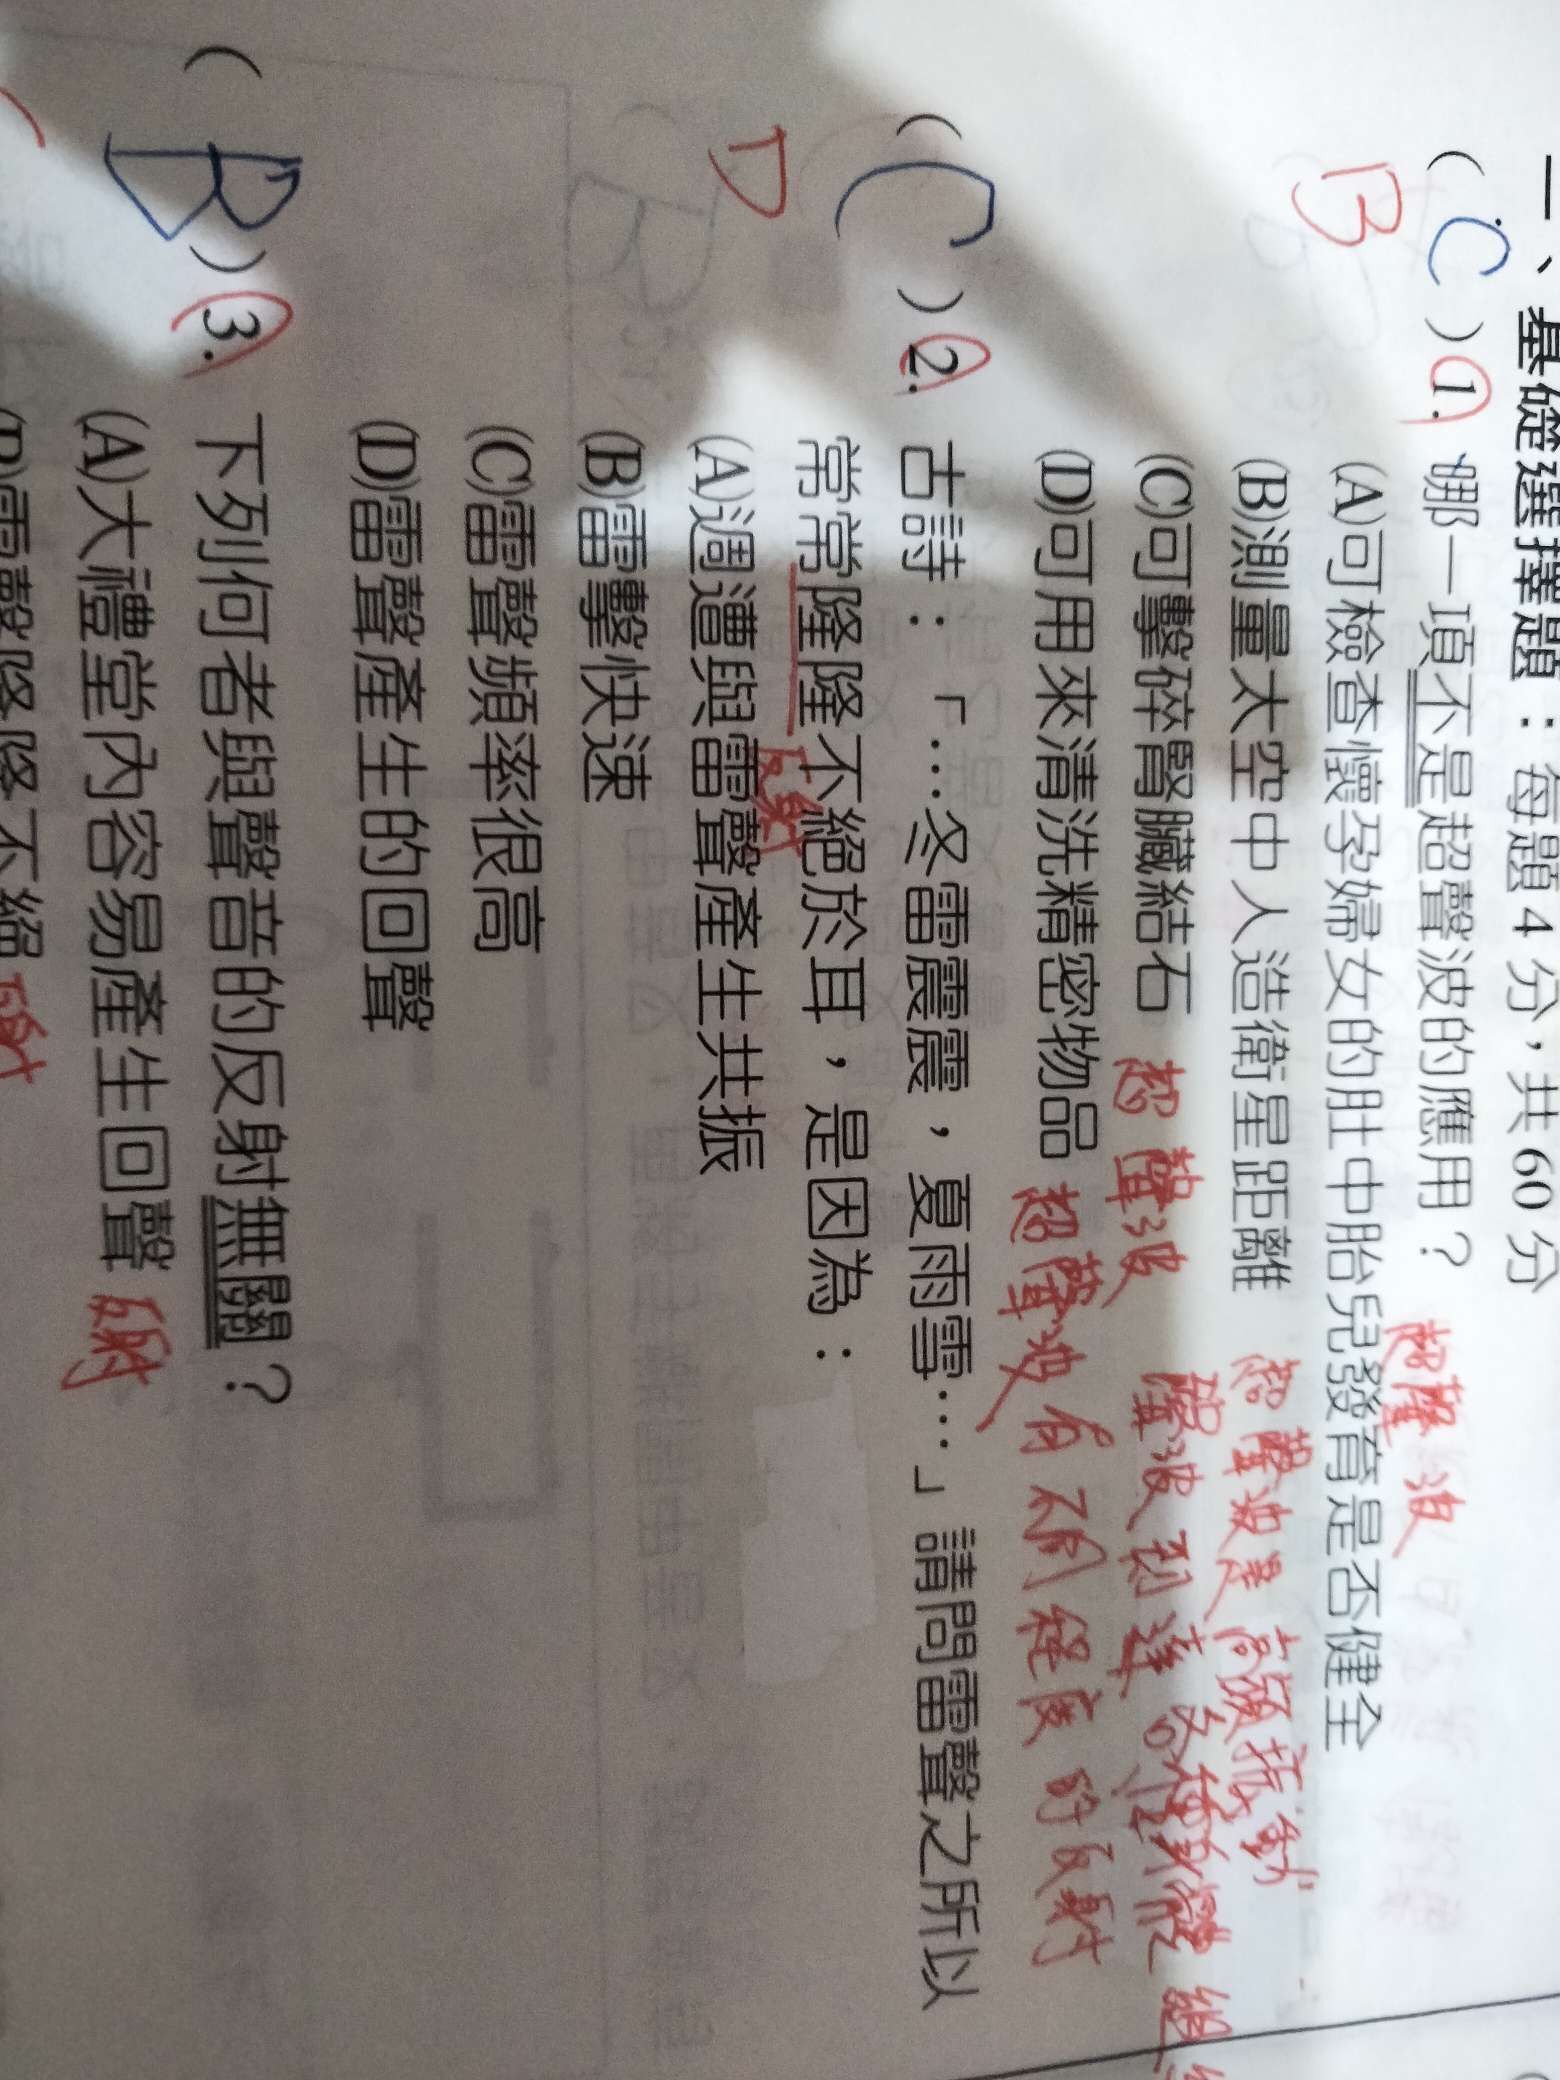 一、基礎選擇題：每題 4 分，共 60 分
( C ) 1. 哪一項不是超聲波的應用？
B
超聲波
(A)可檢查懷孕婦女的肚中胎兒發育是否健全
(B)測量太空中人造衛星距離 超聲波是高頻振動
(C)可擊碎腎臟結石 超聲波 聲波到達 體組
(D)可用來清洗精密物品 超聲波有不同程度的反射
( C ) 2. 古詩：「…冬雷震震，夏雨雪…」請問雷聲之所以
D
常常隆隆不絕於耳，是因為：
反射
(A)週遭與雷聲產生共振
(B)雷擊快速
(C)雷聲頻率很高
(D)雷聲產生的回聲
( B ) 3. 下列何者與聲音的反射無關？
(A)大禮堂內容易產生回聲 反射
(B)雷聲隆隆不絕 反射